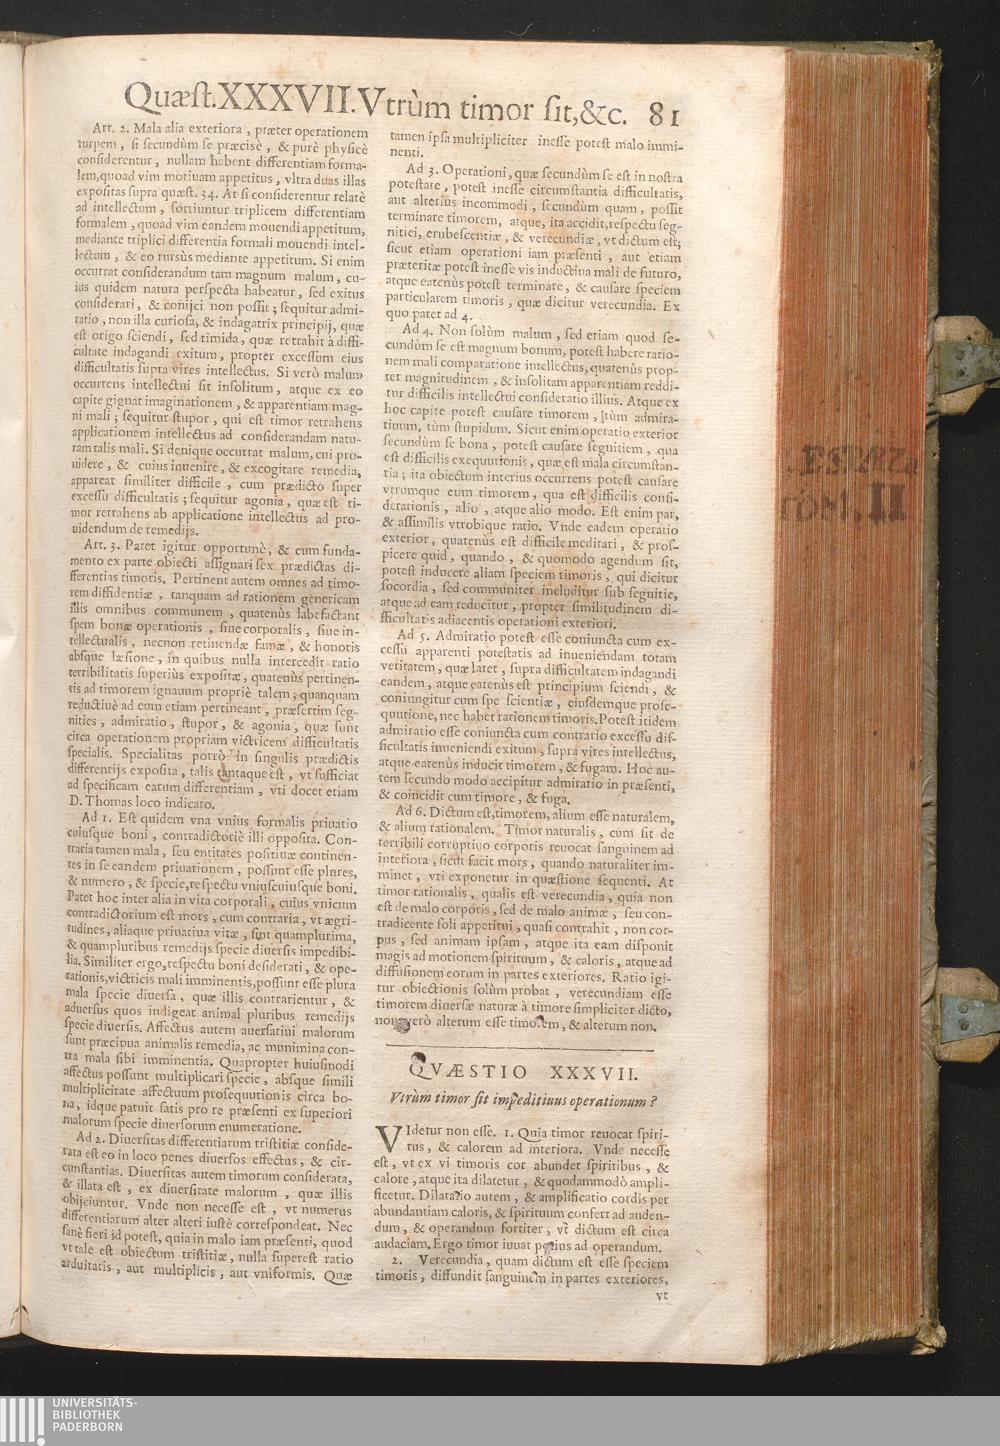 Quæst. XXXVII. Vtrùm timor sit, &c. 81
Art. 2. Mala alia exteriora, præter operationem
turpem, si secundùm se præcisè, & purè physicè
considerentur, nullam habent differentiam forma-
lem, quoad vim motiuam appetitus, vltra duas illas
expositas supra quæst. 34. At si considerentur relatè
ad intellectum, sortiuntur triplicem differentiam
formalem, quoad vim eandem mouendi appetitum,
mediante triplici differentia formali mouendi intel-
lectum, & eo rursùs mediante appetitum. Si enim
occurrat considerandum tam magnum malum, cu-
ius quidem natura perspecta habeatur, sed exitus
considerari, & conijci non possit; sequitur admi-
ratio, non illa curiosa, & indagatrix principij, quæ
est origo sciendi, sed timida, quæ retrahit à diffi-
cultate indagandi exitum, propter excessum eius
difficultatis supra vires intellectus. Si verò malum
occurrens intellectui sit insolitum, atque ex eo
capite gignat imaginationem, & apparentiam mag-
ni mali; sequitur stupor, qui est timor retrahens
applicationem intellectus ad considerandam natu-
ram talis mali. Si denique occurrat malum, cui pro-
uidere, & cuius inuenire, & excogitare remedia,
appareat similiter difficile, cum prædicto super
excessu difficultatis; sequitur agonia, quæ est ti-
mor retrahens ab applicatione intellectus ad pro-
uidendum de remedijs.
Art. 3. Patet igitur opportunè, & cum funda-
mento ex parte obiecti assignari sex prædictas di-
fferentias timoris. Pertinent autem omnes ad timo-
rem diffidentiæ, tanquam ad rationem genericam
illis omnibus communem, quatenùs labefactant
spem bonæ operationis, siue corporalis, siue in-
tellectualis, necnon retinendæ famæ, & honoris
absque læsione, in quibus nulla intercedit ratio
terribilitatis superiùs expositæ, quatenùs pertinen-
tis ad timorem ignauum propriè talem; quanquam
reductiuè ad eum etiam pertineant, præsertim seg-
nities, admiratio, stupor, & agonia, quæ sunt
circa operationem propriam victricem difficultatis
specialis. Specialitas porrò in singulis prædictis
differentijs exposita, talis tantaque est, vt sufficiat
ad specificam earum differentiam, vti docet etiam
D. Thomas loco indicato.
Ad 1. Est quidem vna vnius formalis priuatio
cuiusque boni, contradictoriè illi opposita. Con-
traria tamen mala, seu entitates positiuæ continen-
tes in se eandem priuationem, possunt esse plures,
& numero, & specie, respectu vniuscuiusque boni.
Patet hoc inter alia in vita corporali, cuius vnicum
contradictorium est mors, cum contraria, vt ægri-
tudines, aliaque priuatiua vitæ, sint quamplurima,
& quampluribus remedijs specie diuersis impedibi-
lia. Similiter ergo, respectu boni desiderati, & ope-
rationis, victricis mali imminentis, possunt esse plura
mala specie diuersa, quæ illis contrarientur, &
aduersus quos indigeat animal pluribus remedijs
specie diuersis. Affectus autem auersatiui malorum
sunt præcipua animalis remedia, ac munimina con-
tra mala sibi imminentia. Quapropter huiusmodi
affectus possunt multiplicari specie, absque simili
multiplicitate affectuum prosequutionis circa bo-
na, idque patuit satis pro re præsenti ex superiori
malorum specie diuersorum enumeratione.
Ad 2. Diuersitas differentiarum tristitiæ conside-
rata est eo in loco penes diuersos effectus, & cir-
cunstantias. Diuersitas autem timorum considerata,
& illata est, ex diuersitate malorum, quæ illis
obijciuntur. Vnde non necesse est, vt numerus
differentiarum alter alteri iustè correspondeat. Nec
sanè fieri id potest, quia in malo iam præsenti, quod
vt tale est obiectum tristitiæ, nulla superest ratio
arduitatis, aut multiplicis, aut vniformis. Quæ
tamen ipsa multipliciter inesse potest malo immi-
nenti.
Ad 3. Operationi, quæ secundùm se est in nostra
potestate, potest inesse circumstantia difficultatis,
aut alterius incommodi, secundùm quam, possit
terminare timorem, atque, ita accidit, respectu seg-
nitiei, erubescentiæ, & verecundiæ, vt dictum est;
sicut etiam operationi iam præsenti, aut etiam
præteritæ potest inesse vis inductiua mali de futuro,
atque eatenùs potest terminare, & causare speciem
particularem timoris, quæ dicitur verecundia. Ex
quo patet ad 4.
Ad 4. Non solùm malum, sed etiam quod se-
cundùm se est magnum bonum, potest habere ratio-
nem mali comparatione intellectus, quatenùs prop-
ter magnitudinem, & insolitam apparentiam reddi-
tur difficilis intellectui consideratio illius. Atque ex
hoc capite potest causare timorem, tùm admira-
tiuum, tùm stupidum. Sicut enim operatio exterior
secundùm se bona, potest causare segnitiem, qua
est difficilis exequutionis, quæ est mala circumstan-
tia; ita obiectum interius occurrens potest causare
vtrumque eum timorem, qua est difficilis consi-
derationis, alio, atque alio modo. Est enim par,
& assimilis vtrobique ratio. Vnde eadem operatio
exterior, quatenùs est difficile meditari, & pros-
picere quid, quando, & quomodo agendum sit,
potest inducere aliam speciem timoris, qui dicitur
socordia, sed communiter includitur sub segnitie,
atque ad eam reducitur, propter similitudinem di-
fficultatis adiacentis operationi exteriori.
Ad 5. Admiratio potest esse coniuncta cum ex-
cessu apparenti potestatis ad inueniendam totam
veritatem, quæ latet, supra difficultatem indagandi
eandem, atque eatenùs est principium sciendi, &
coniungitur cum spe scientiæ, eiusdemque prose-
quutione, nec habet rationem timoris. Potest itidem
admiratio esse coniuncta cum contrario excessu dif-
ficultatis inueniendi exitum, supra vires intellectus,
atque eatenùs inducit timorem, & fugam. Hoc au-
tem secundo modo accipitur admiratio in præsenti,
& coincidit cum timore, & fuga.
Ad 6. Dictum est, timorem, alium esse naturalem,
& alium rationalem. Timor naturalis, cùm sit de
terribili corruptiuo corporis reuocat sanguinem ad
interiora, sicut facit mors, quando naturaliter im-
minet, vti exponetur in quæstione sequenti. At
timor rationalis, qualis est verecundia, quia non
est de malo corporis, sed de malo animæ, seu con-
tradicente soli appetitui, quasi contrahit, non cor-
pus, sed animam ipsam, atque ita eam disponit
magis ad motionem spirituum, & caloris, atque ad
diffusionem eorum in partes exteriores. Ratio igi-
tur obiectionis solùm probat, verecundiam esse
timorem diuersæ naturæ à timore simpliciter dicto,
non verò alterum esse timorem, & alterum non.
QVÆSTIO XXXVII.
Vtrùm timor sit impeditiuus operationum?
VIdetur non esse. 1. Quia timor reuocat spiri-
tus, & calorem ad interiora. Vnde necesse
est, vt ex vi timoris cor abundet spiritibus, &
calore, atque ita dilatetur, & quodammodò ampli-
ficetur. Dilatatio autem, & amplificatio cordis per
abundantiam caloris, & spirituum confert ad auden-
dum, & operandum fortiter, vt dictum est circa
audaciam. Ergo timor iuuat potius ad operandum.
2. Verecundia, quam dictum est esse speciem
timoris, diffundit sanguinem in partes exteriores,
vt
TOM. II
UNIVERSITÄTS-
BIBLIOTHEK
PADERBORN